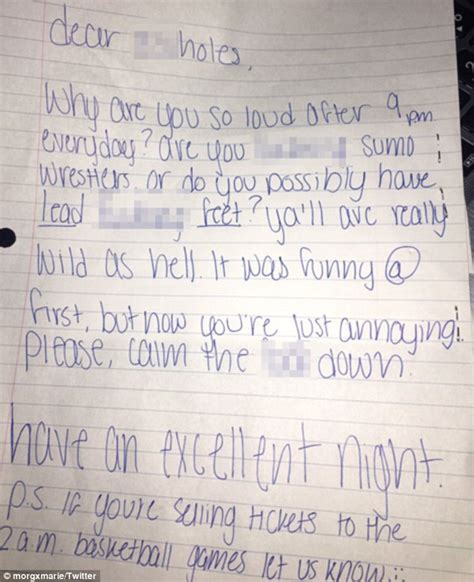 dear holes,
Why are you so loud after 9pm
everyday? are you sumo
wrestlers or do you possibly have
lead feet? ya'll are really
wild as hell. It was funny @
first, but now you're just annoying!
please, calm the down.
have an excellent night.
p.s. if you're selling tickets to the
2 a.m. basketball games let us know ::
© morgxmarie/Twitter